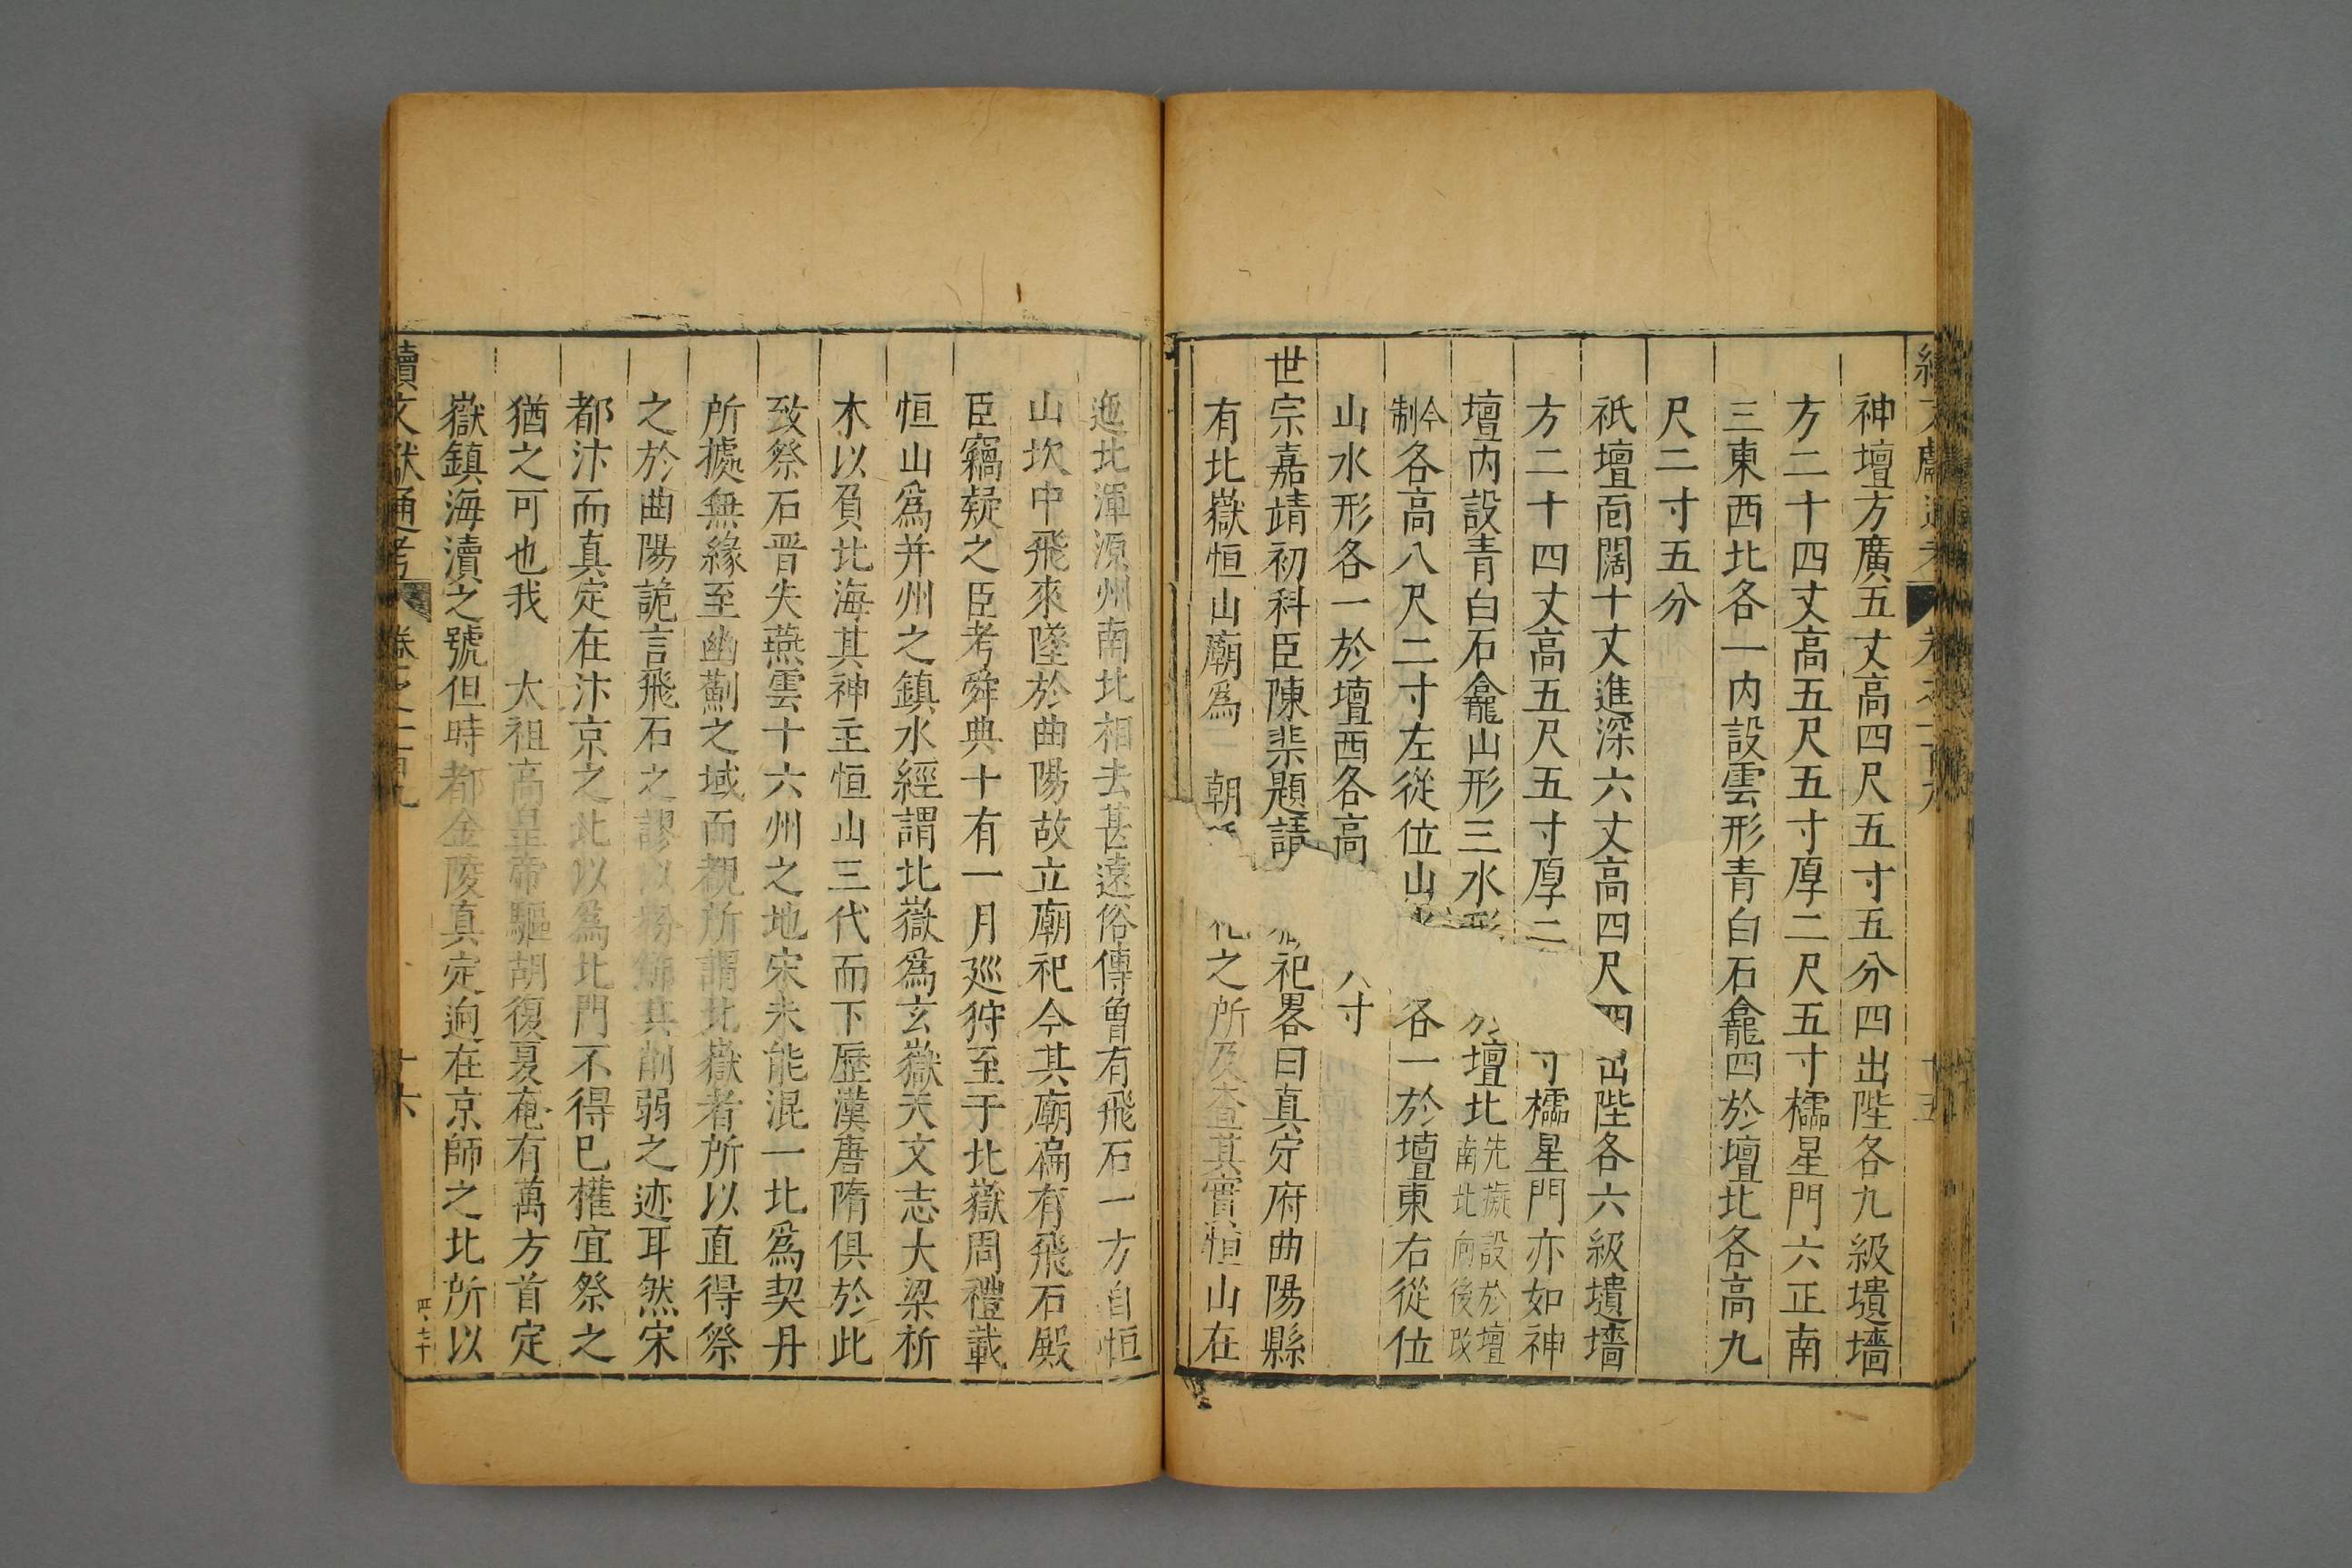 神壇方廣五丈高四尺五寸五分四出陛各九級壝墻
方二十四丈高五尺五寸厚二尺五寸櫺星門六正南
三東西北各一内設雲形青白石龕四於壇北各高九
尺二寸五分
祇壇面闊十丈進深六丈高四尺四出陛各六級壝墻
方二十四丈高五尺五寸厚二寸櫺星門亦如神
壇内設青白石龕山形三水形壇北先擬設於壇南北向後改
今制各高八尺二寸左從位山各一於壇東右從位
山水形各一於壇西各高八寸
世宗嘉靖初科臣陳棐題請祀畧曰真定府曲陽縣
有北嶽恒山廟爲朝之所及查其實恒山在
迤北渾源州南北相去甚遠俗傳曾有飛石一方自恒
山坎中飛來墜於曲陽故立廟祀今其廟扁有飛石殿
臣竊疑之臣考舜典十有一月廵狩至于北嶽周禮載
恒山爲并州之鎮水經謂北嶽爲玄嶽天文志大梁析
木以負北海其神主恒山三代而下歷漢唐隋俱於此
致祭石晋失燕雲十六州之地宋未能混一北爲契丹
所據無緣至幽薊之域而覩所謂北嶽者所以直得祭
之於曲陽詭言飛石之謬以粉飾其削弱之迹耳然宋
都汴而真定在汴京之北以爲北門不得已權宜祭之
猶之可也我　太祖高皇帝驅胡復夏奄有萬方首定
嶽鎮海瀆之號但時都金陵真定逈在京師之北所以
續文獻通考　卷之一百九　十六